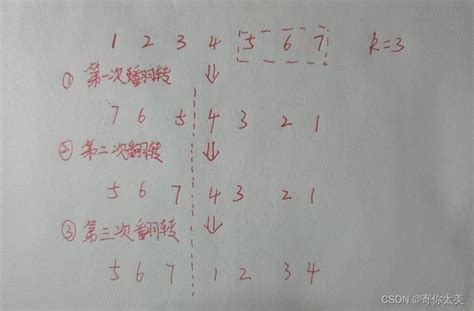 1 2 3 4 5 6 7 k=3
① 第一次翻转 ⇓
7 6 5 4 3 2 1
② 第二次翻转 ⇓
5 6 7 4 3 2 1
③ 第三次翻转 ⇓
5 6 7 1 2 3 4
CSDN @寄你太美